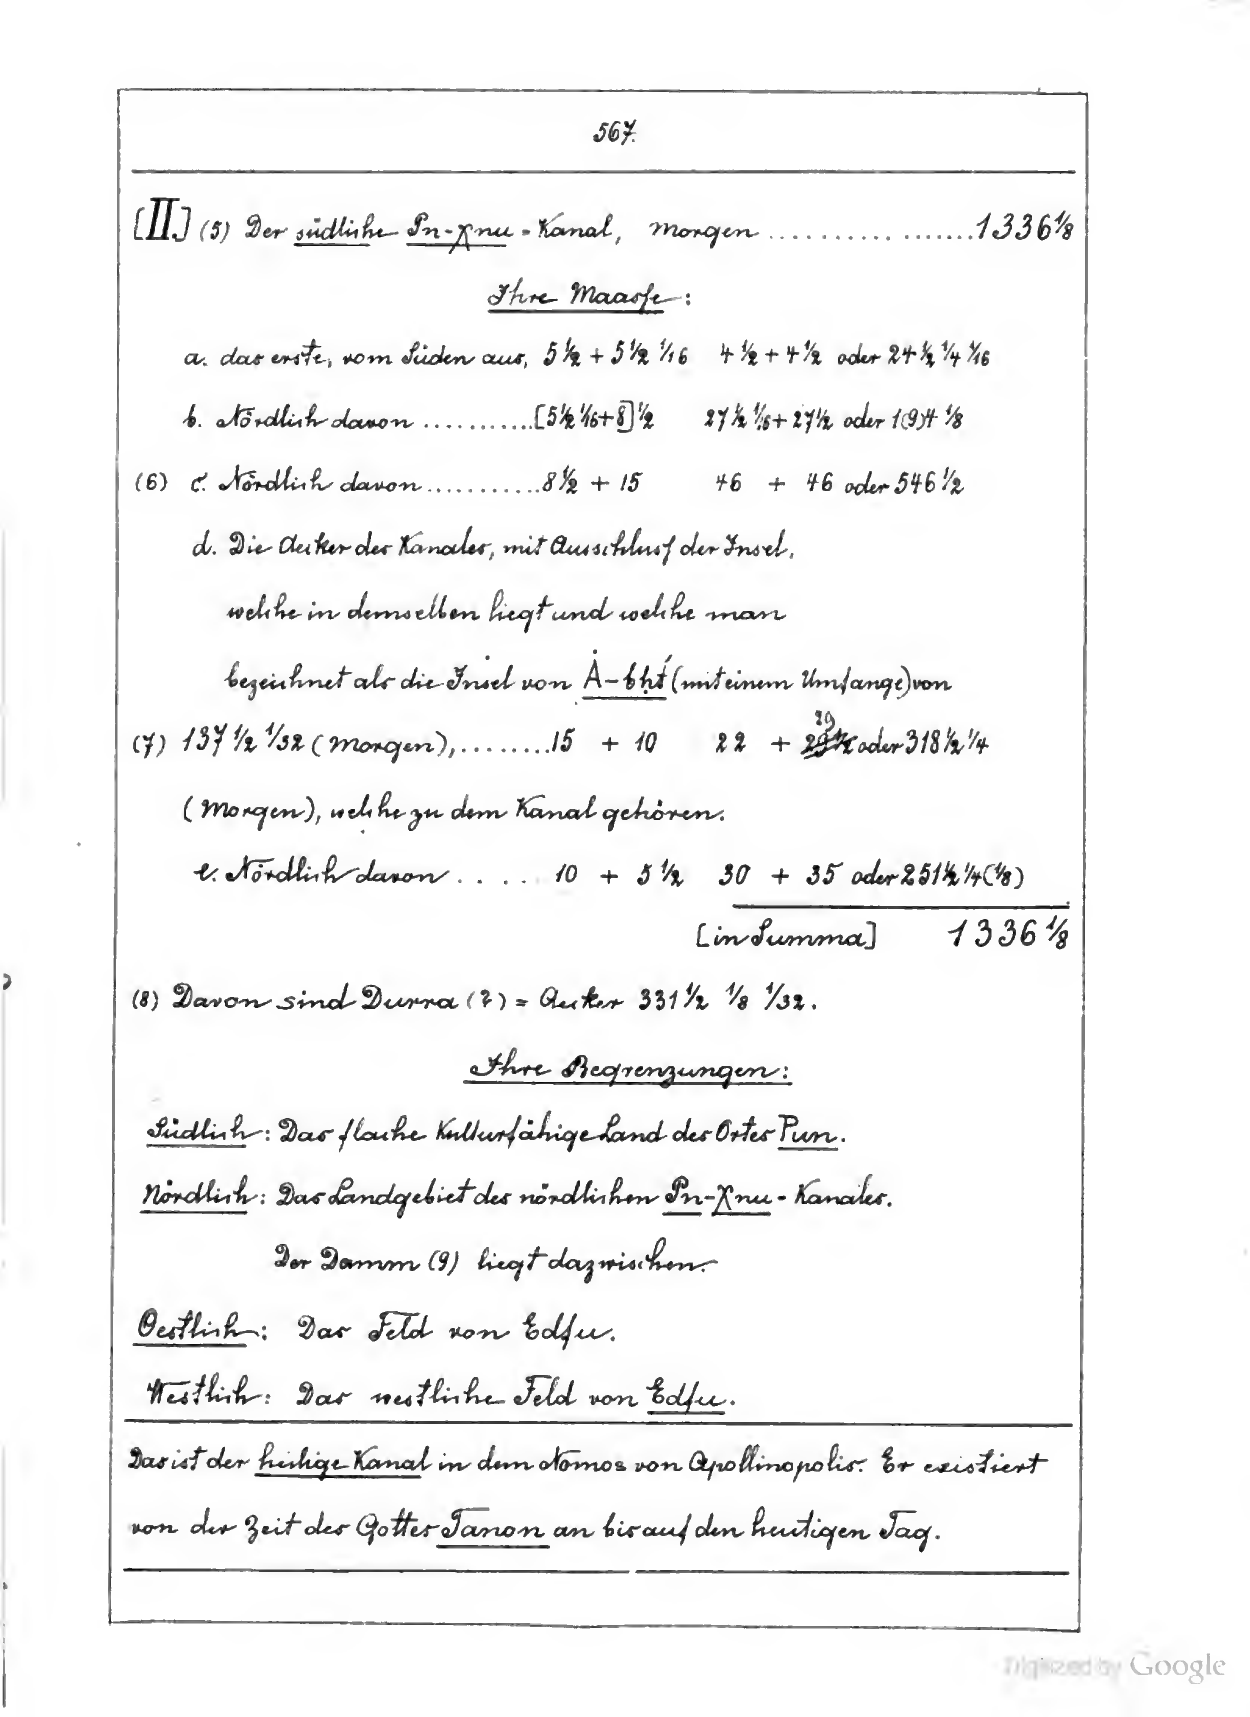 567.
[II.] (5) Der südliche Pn-χnu-Kanal, Morgen ................... 1336 1/8
Ihre Maasse:
a. das erste, vom Süden aus, 5 1/2 + 5 1/2 1/16 4 1/2 + 4 1/2 oder 24 1/2 1/4 1/16
b. Nördlich davon ........... [5 1/2 1/16 + 8] 1/2 27 1/2 1/16 + 27 1/2 oder 1(9)4 1/8
(6) c. Nördlich davon ........... 8 1/2 + 15 46 + 46 oder 546 1/2
d. Die Acker des Kanales, mit Ausschluss der Insel,
welche in demselben liegt und welche man
bezeichnet als die Insel von Ȧ-bḥt́ (mit einem Umfange) von
(7) 137 1/2 1/32 (Morgen), ........ 15 + 10 22 + 29 oder 318 1/2 1/4
(Morgen), welche zu dem Kanal gehören.
e. Nördlich davon .... 10 + 5 1/2 30 + 35 oder 251 1/2 1/4 (1/8)
[in Summa] 1336 1/8
(8) Davon sind Durra (?) = Acker 331 1/2 1/8 1/32.
Ihre Begrenzungen:
Südlich: Das flache Kulturfähige Land des Ortes Pun.
Nördlich: Das Landgebiet des nördlichen Pn-χnu-Kanales.
Der Damm (9) liegt dazwischen.
Oestlich: Das Feld von Edfu.
Westlich: Das westliche Feld von Edfu.
Das ist der heilige Kanal in dem Nomos von Apollinopolis. Er existiert
von der Zeit des Gottes Tanon an bis auf den heutigen Tag.
Digitized by Google